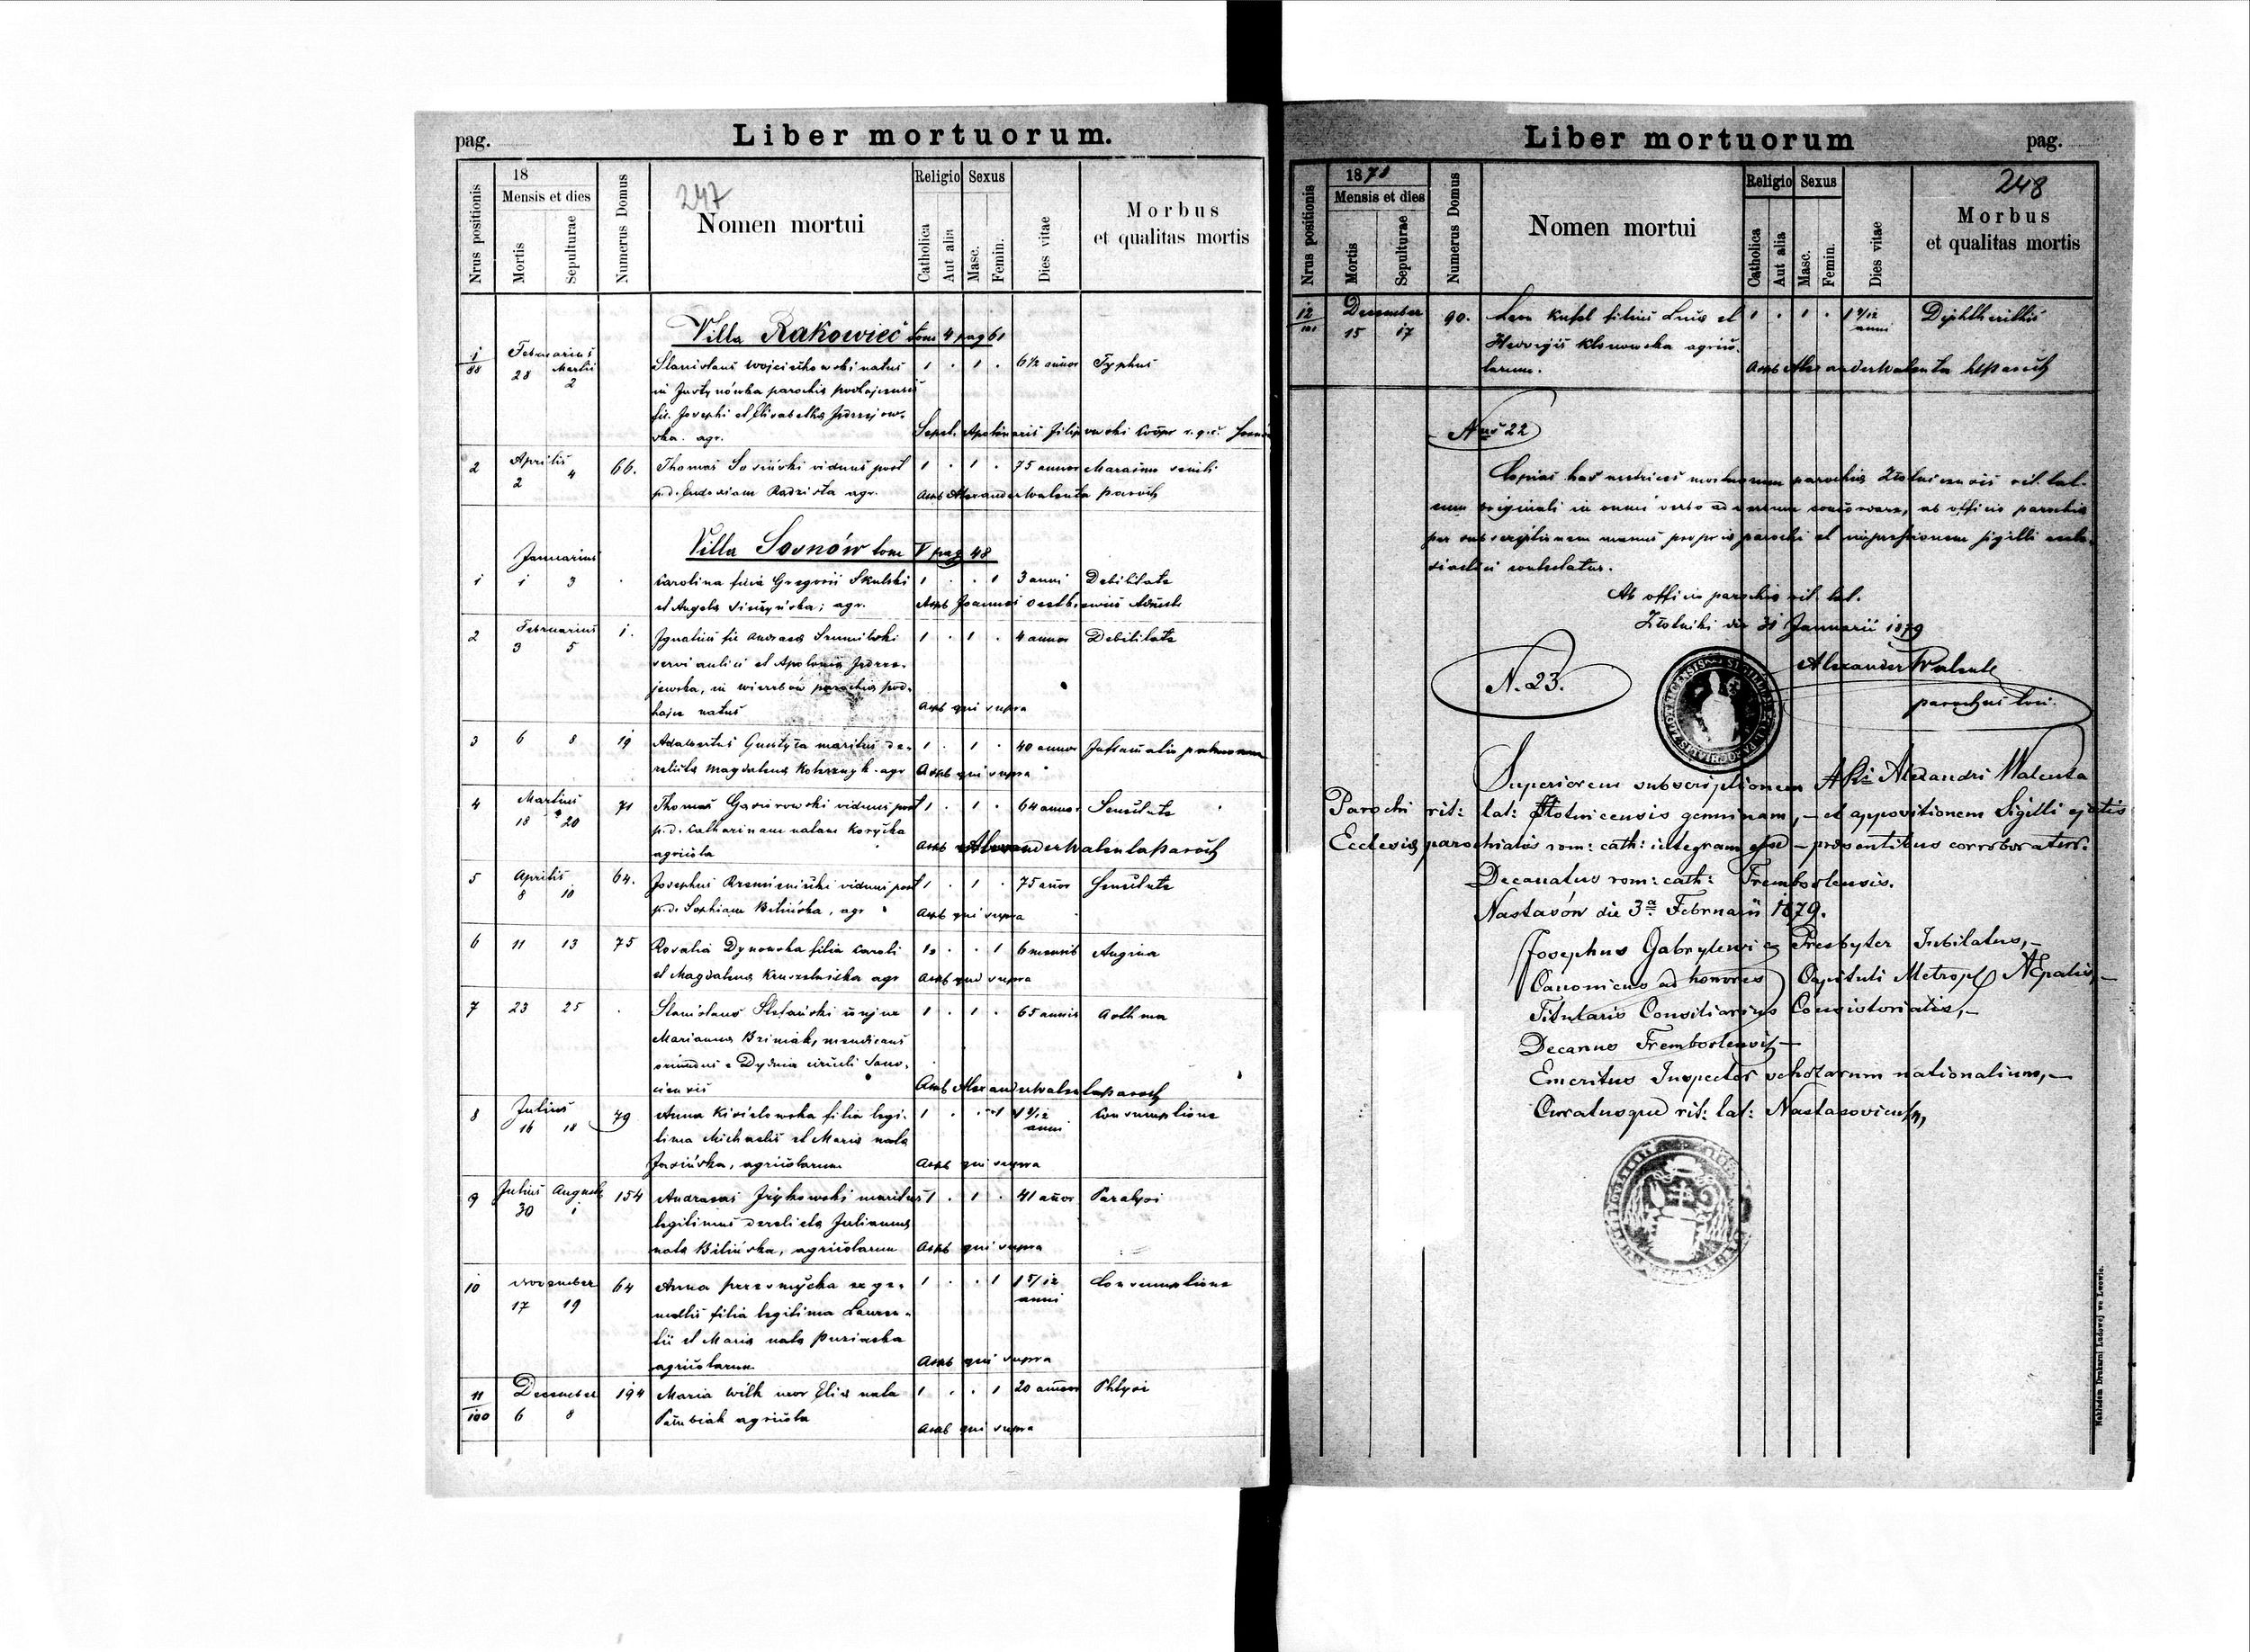 pag.
Liber mortuorum.
Nrus positionis
18
Mensis et dies
Mortis
Sepulturae
Numerus Domus
247
Nomen mortui
Religio
Catholica
Aut alia
Sexus
Masc.
Femin.
Dies vitae
Morbus
et qualitas mortis
Villa Rakowiec tom 4 pag 61
1/88 Februarius Martii
28 2
Stanislaus Wojciechowski natus 1 . 1 . 6 1/2 annor Typhus
in Justynówka parochia podhajecensis
fil. Josephi et Elisabetha Jędrzejow-
ska. agr.
Sepel. Apolinaris Filipowski
2 Aprilis 2 4 66. Thomas Sosiński viduus post 1 . 1 . 75 annor Marasmo senili
p.d. Eudoxiam Radzista agr. Asst Alexander Walenta paroch
Villa Sosnów tom V pag 48
Januarius
1 1 3 . Carolina filia Gregorii Skulski 1 . . 1 3 anni Debilitate
et Angela; agr. Asst Joannes
2 Februarius 3 5 1. Ignatius fil Andreas 1 . 1 . 4 annor Debilitate
servi aulici et Apolonia Jędrze-
jewska, in Wierzbów parochia pod-
hajce natus Asst qui supra
3 6 8 19 Adalbertus maritus de- 1 . 1 . 40 annor Inflamatio pulmonum
relicta Magdalena agr Asst qui supra
4 Martius 18 20 71 Thomas Gąsiorowski viduus post 1 . 1 . 64 annor. Senectute
p.d. Catharinam natam Korycka
agricola Asst Alexander Walenta Paroch
5 Aprilis 8 10 64. Josephus viduus post 1 . 1 . 75 anor Senectute
p.d. Sophiam Bilińska, agr Asst qui supra
6 11 13 75 Rosalia Dynowska filia Caroli 1 . . 1 6 mensis Angina
et Magdalena Kruszelnicka agr Asst qui supra
7 23 25 . Stanislaus Stefański conjux 1 . 1 . 65 annis Asthma
Marianna Bziniak, mendicans
oriundus e Dydnia circuli Sano-
censis Asst Alexander Walenta paroch
8 Julius 16 18 79 Anna Kisielewska filia legi- 1 . . 1 anni Consumptione
tima Michaelis et Maria nata
Jasińska, agricolarum Asst qui supra
9 Julius Augusti 30 1 154 Andreas maritus 1 . 1 . 41 anor Paralysi
legitimus derelicta Julianna
nata Bilińska, agricolarum Asst qui supra
10 November 17 19 64 Anna Przesmycka ex ge- 1 . . 1 1 5/12 anni Consumptione
mellis filia legitima Lauren-
tii et Maria nata
agricolarum Asst qui supra
11/100 December 6 8 194 Maria Wilk uxor Elia nata 1 . . 1 20 annor Phtysi
agricola Asst qui supra
Liber mortuorum
pag.
Nrus positionis
1878
Mensis et dies
Mortis
Sepulturae
Numerus Domus
Nomen mortui
Religio
Catholica
Aut alia
Sexus
Masc.
Femin.
Dies vitae
248
Morbus
et qualitas mortis
12/101 December 15 17 90. Leon Kufel filius Luca et 1 . 1 . anni Diphtheritis
Hedvigis Klonowska agrico-
larum. Asst Alexander Walenta Paroch
Nus 22
Copias has metrices mortuorum parochia Złotnicensis rit. lat.
cum originali in omni verbo ad verbum concordare, ab officio parochia
per subscriptionem manus propria parochi et impressionem sigilli eccle-
siastici contestatur.
Ab officio parochia rit. lat.
Złotniki die 31 Januarii 1879
Alexander Walenta
parochus loci.
N. 23.
Superiorem subscriptionem Alexandri Walenta
Parochi rit: lat: Złotnicensis genuinam, — et appositionem Sigilli ejatis
Ecclesia parochialis rom: cath: integram esse — praesentibus corroboratur.
Decanatus rom: cath: Trembovlensis.
Nastasów die 3a Februarii 1879.
Josephus Gabrylewicz Presbyter Jubilatus, —
Canonicus ad honores Capituli Metropl AEpalis, —
Titularis Consiliarius Consistorialis, —
Decanus Trembovlensis —
Emeritus Inspector scholarum nationalium, —
Curatusque rit: lat: Nastasoviensis
Nakładem Drukarni Ludowej we Lwowie.